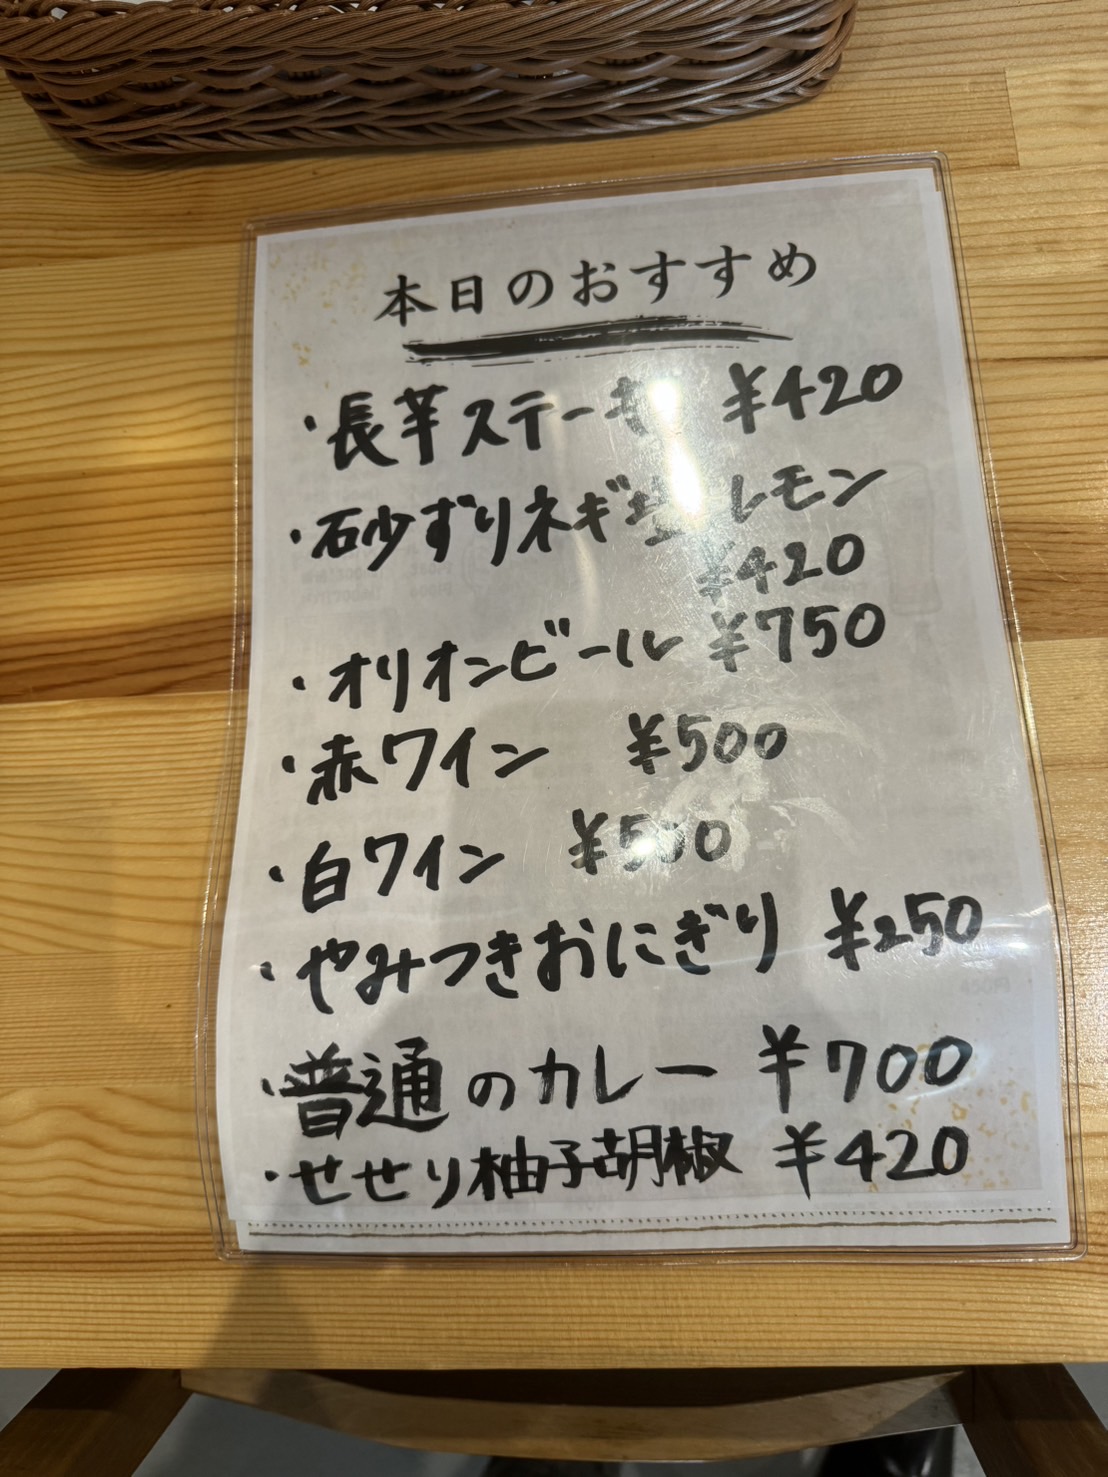 本日のおすすめ
・長芋ステーキ ¥420
・石砂ずりネギ塩レモン
¥420
・オリオンビール ¥750
・赤ワイン ¥500
・白ワイン ¥500
・やみつきおにぎり ¥250
・普通のカレー ¥700
・せせり柚子胡椒 ¥420